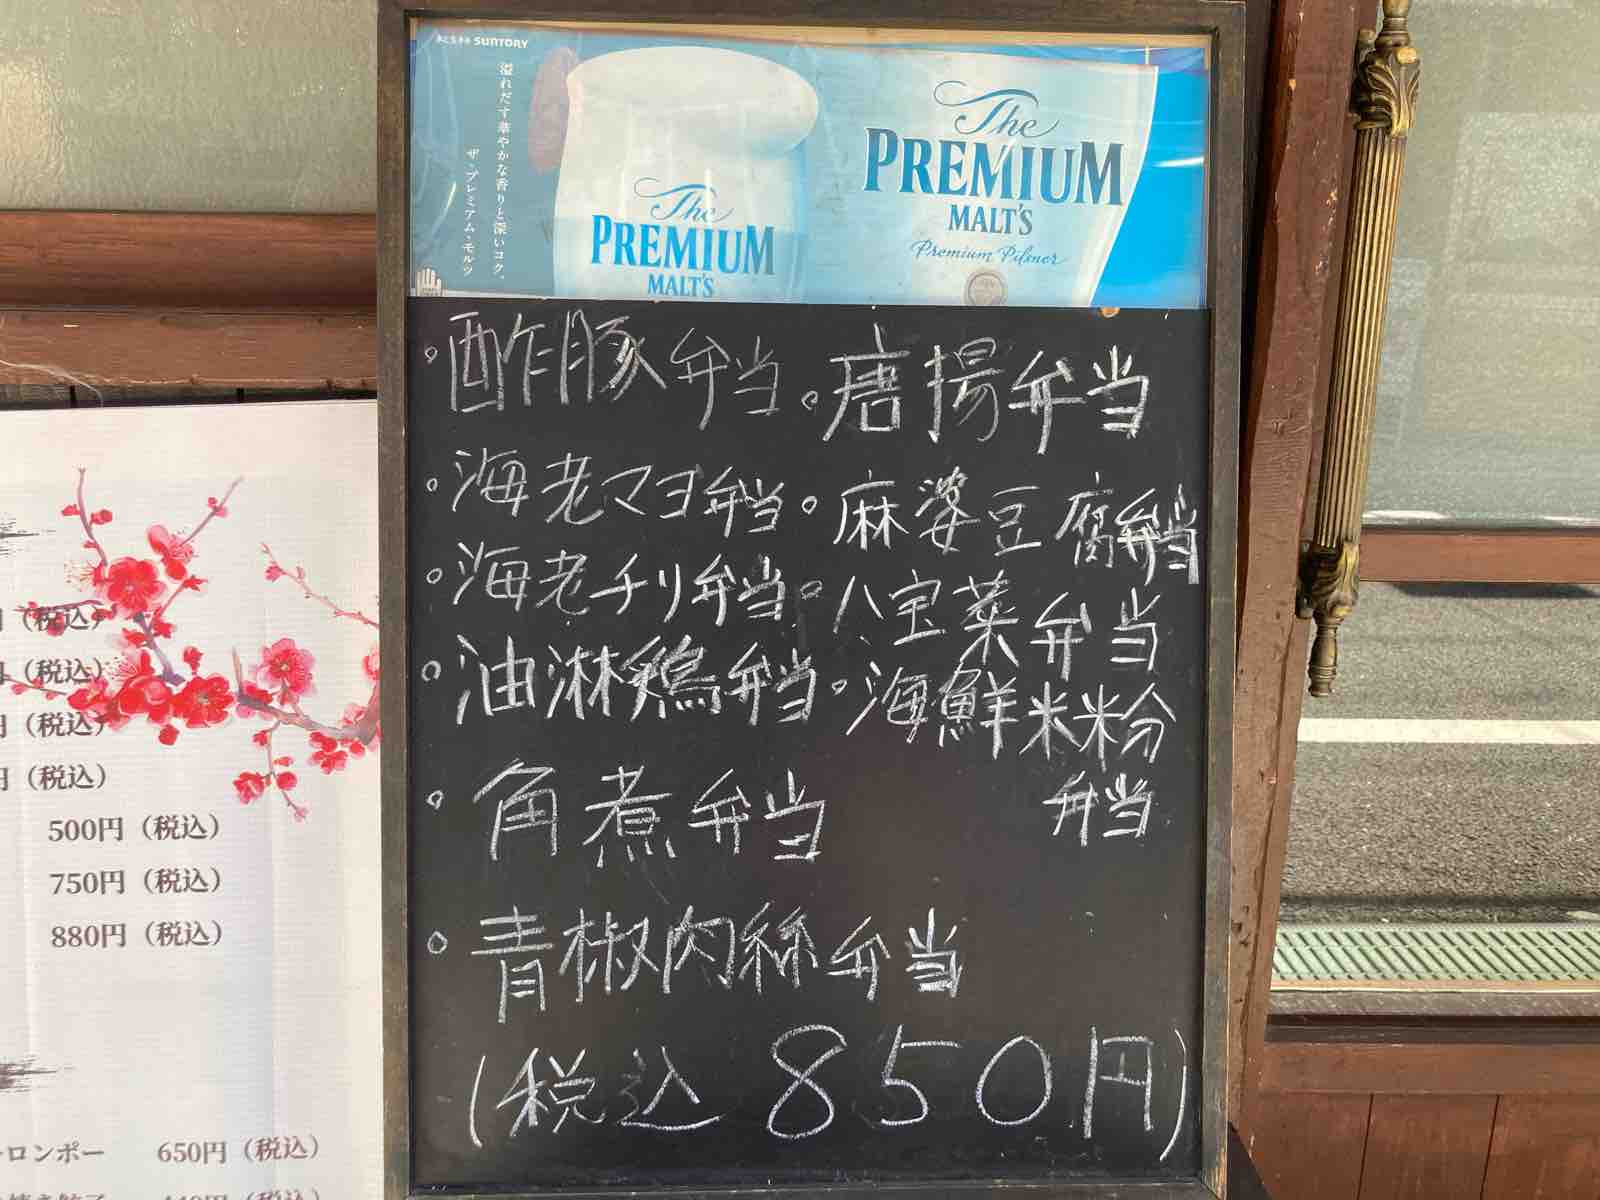 SUNTORY
溢れだす華やかな香りと深いコク。
ザ・プレミアム・モルツ
The
PREMIUM
MALT'S
The
PREMIUM
MALT'S
Premium Pilsner
。酢豚弁当
。唐揚弁当
。海老マヨ弁当
。麻婆豆腐弁当
。海老チリ弁当
。八宝菜弁当
。油淋鶏弁当
。海鮮米粉
弁当
。角煮弁当
。青椒肉絲弁当
(税込850円)
(税込)
(税込)
円(税込)
円(税込)
500円(税込)
750円(税込)
880円(税込)
ーロンポー 650円(税込)